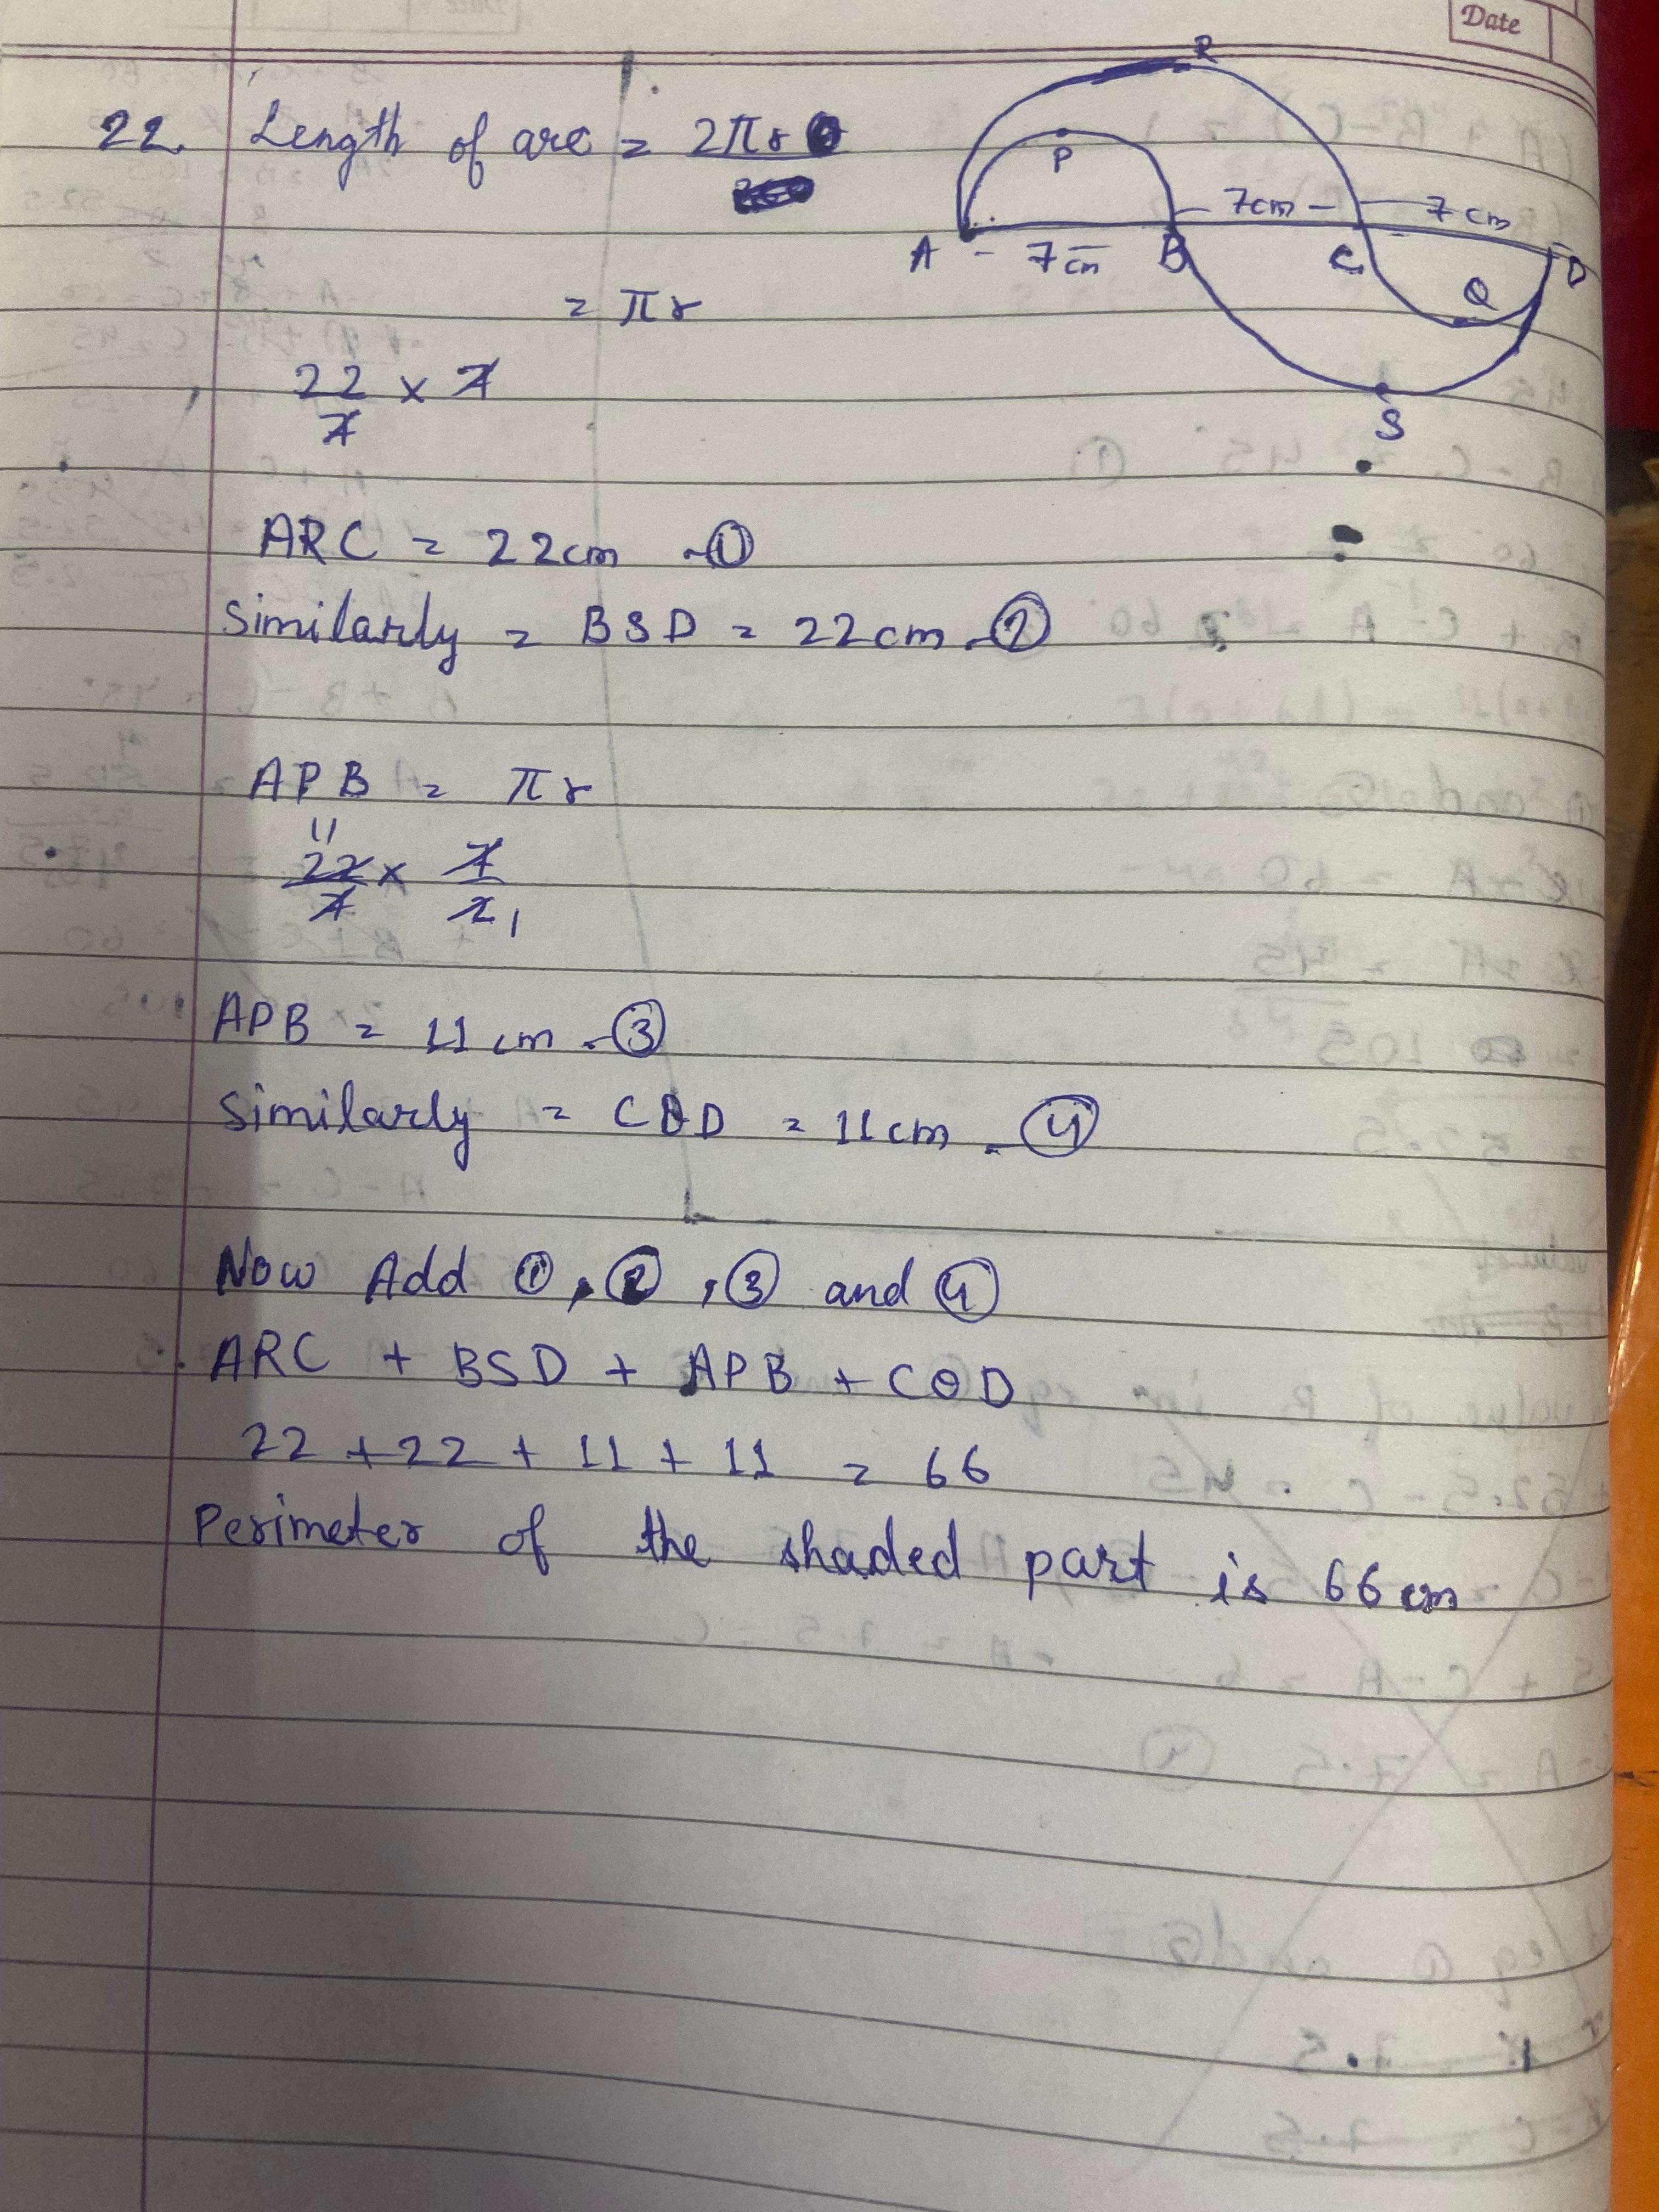 Date
22. Length of arc = 2πr
= πr
22/7 × 7
R
P
7cm
7 cm
A - 7cm B C D
Q
S
ARC = 22cm - ①
Similarly = BSD = 22cm - ②
APB = πr
11
22/7 × 7/2 1
APB = 11 cm - ③
Similarly = CQD = 11cm - ④
Now Add ①, ②, ③ and ④
ARC + BSD + APB + CQD
22 + 22 + 11 + 11 = 66
Perimeter of the shaded part is 66 cm